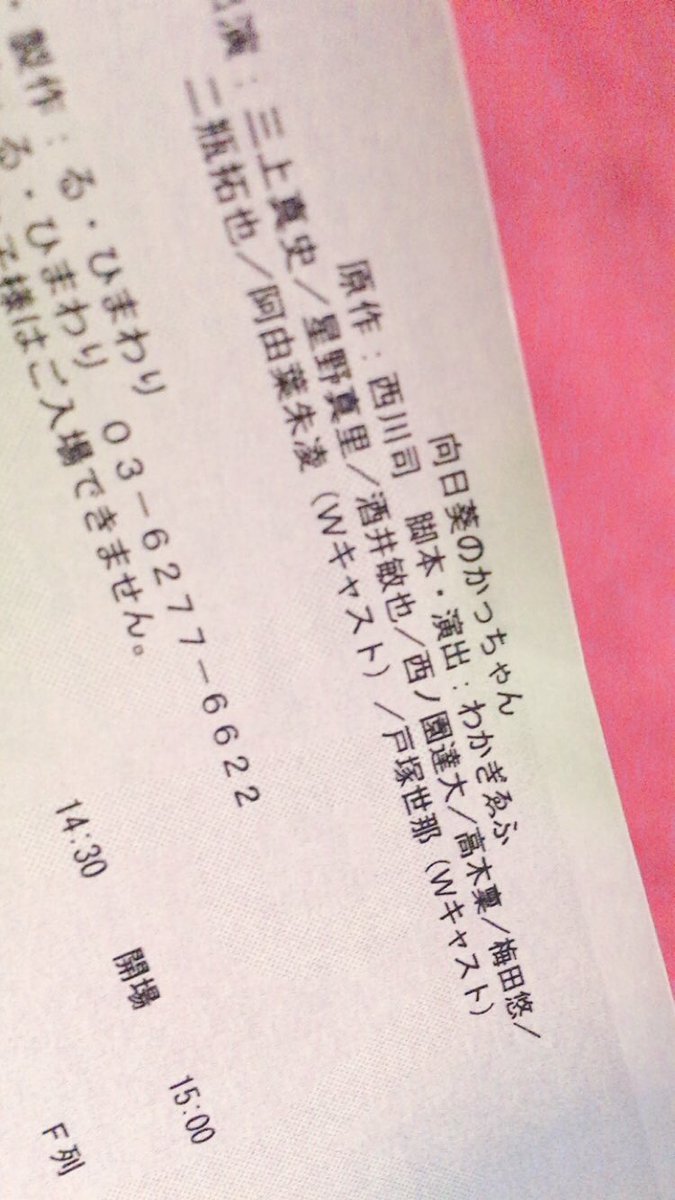 向日葵のかっちゃん
原作：西川司　脚本・演出：わかぎゑふ
出演：三上真史／星野真里／酒井敏也／西ノ園達大／高木稟／梅田悠／
二瓶拓也／阿由葉朱凌（Wキャスト）／戸塚世那（Wキャスト）
・製作：る・ひまわり
る・ひまわり　03－6277－6622
子様はご入場できません。
14:30　開場　15:00
F列